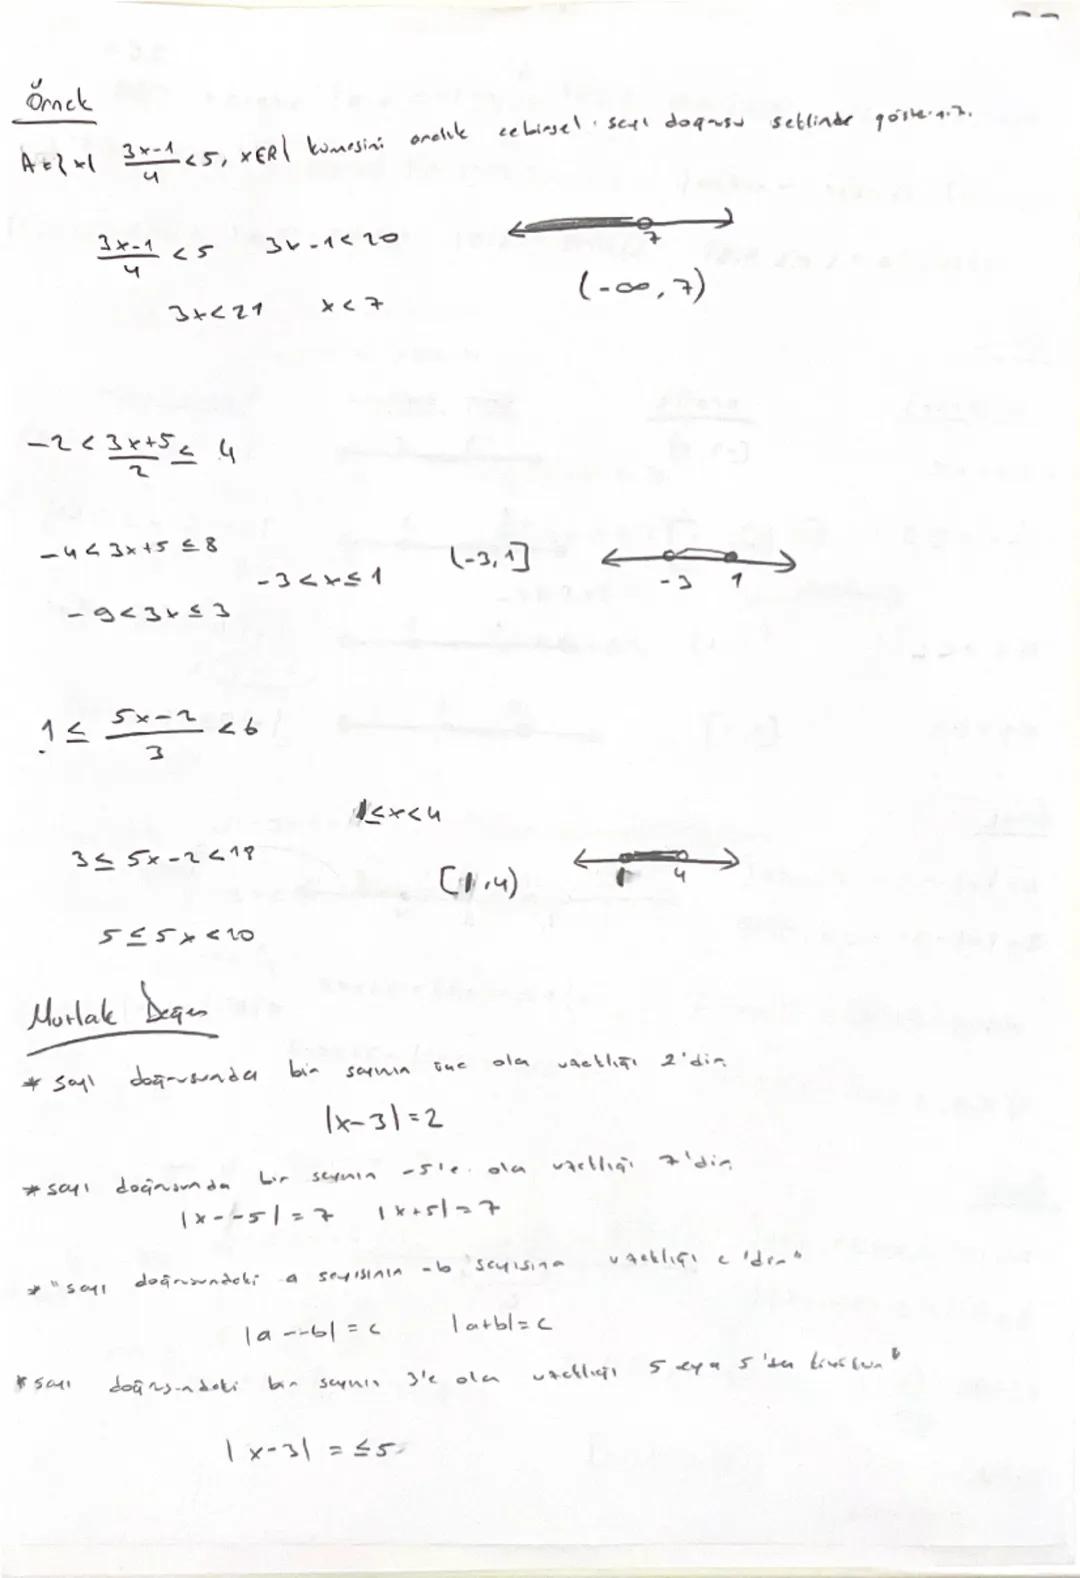 Örnek
A = { x | (3x-1)/4 < 5, x∈R | kümesini aralık cebirsel sayı doğrusu şeklinde gösteriniz.
(3x-1)/4 < 5 3x-1<20
7
3x<21 x<7 (-∞,7)
-2 < (3x+5)/2 ≤ 4
-4 < 3x+5 ≤ 8
-3 < x ≤ 1 (-3,1] -3 1
-9 < 3x ≤ 3
1 ≤ (5x-2)/3 < 6
1≤x<4
3 ≤ 5x-2 < 18
[1,4) 1 4
5 ≤ 5x < 20
Mutlak Değer
* sayı doğrusunda bir sayının üçe olan uzaklığı 2'dir
|x-3|=2
* sayı doğrusunda bir sayının -5'e olan uzaklığı 7'dir
|x--5|=7 |x+5|=7
* "sayı doğrusundaki a sayısının -b sayısına uzaklığı c'dir"
|a--b|=c |a+b|=c
* sayı doğrusundaki bir sayının 3'e olan uzaklığı 5 veya 5'ten
|x-3| = ≤5